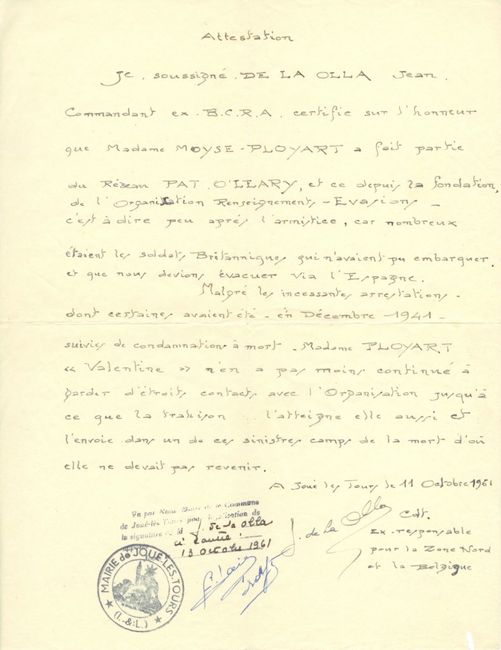 Attestation
Je soussigné DE LA OLLA Jean.
Commandant ex-B.C.R.A. certifie sur l'honneur
que Madame MOYSE-PLOYART a fait partie
du Réseau PAT O'LEARY, et ce depuis la fondation,
de l'Organisation Renseignements-Evasions-
c'est à dire peu après l'armistice, car nombreux
étaient les soldats Britanniques qui n'avaient pu embarquer.
et que nous devions évacuer via l'Espagne.
Malgré les incessantes arrestations-
dont certaines avaient été - en Décembre 1941-
suivies de condamnations à mort - Madame PLOYART
« Valentine » n'en a pas moins continué à
garder d'étroits contacts avec l'Organisation jusqu'à
ce que la trahison l'atteigne elle aussi et
l'envoie dans un de ces sinistres camps de la mort d'où
elle ne devait pas revenir.
A Joué les Tours le 11 Octobre 1961
Vu par Nous Maire de la Commune
de Joué-lès-Tours pour légalisation de
la signature de M J. de la Olla
13 octobre 1961
J. de la Olla
Cdt.
Ex-responsable
pour la Zone Nord
et la Belgique
MAIRIE de JOUÉ-LES-TOURS
(I.-&-L.)